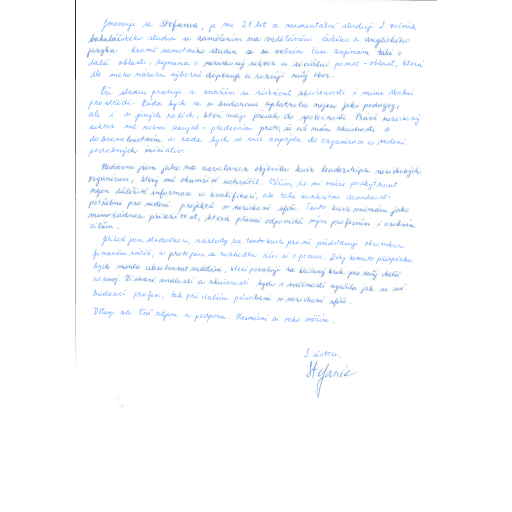 Jmenuji se Stefanie, je mi 21 let a momentálně studuji 2. ročník
bakalářského studia se zaměřením na vzdělávání českého a anglického
jazyka. Kromě samotného studia se ve volném čase zajímám také o
další oblasti, zejména o neziskový sektor a sociální pomoc - oblast, která
dle mého názoru výborně doplňuje a rozvíjí můj obor.
Při studiu pracuji a snažím se získávat zkušenosti i mimo školní
prostředí. Ráda bych se v budoucnu uplatnila nejen jako pedagog,
ale i v jiných rolích, které mají přesah do společnosti. Právě neziskový
sektor mě velmi zaujal - především proto, že už mám zkušenosti s
dobrovolnictvím a ráda bych se více zapojila do organizace a vedení
podobných iniciativ.
Nedávno jsem jako na zavolanou objevila kurz leadershipu neziskových
organizací, který mě okamžitě uchvátil. Věřím, že mi může poskytnout
nejen důležité informace a kvalifikaci, ale také konkrétní dovednosti
potřebné pro vedení projektů v neziskové sféře. Tento kurz vnímám jako
mimořádnou příležitost, která přesně odpovídá mým profesním i osobním
cílům.
Jelikož jsem studentkou, náklady na tento kurz pro mě představují obrovskou
finanční zátěž, a proto jsem se rozhodla Vás o pomoc. Díky tomuto příspěvku
bych mohla absolvovat vzdělání, které považuji za klíčový krok pro svůj další
rozvoj. Získané znalosti a zkušenosti bych s vděčností využila jak ve své
budoucí profesi, tak při dalším působení v neziskové sféře.
Děkuji za Váš zájem a podporu. Nesmírně si toho vážím.
S úctou,
Stefanie